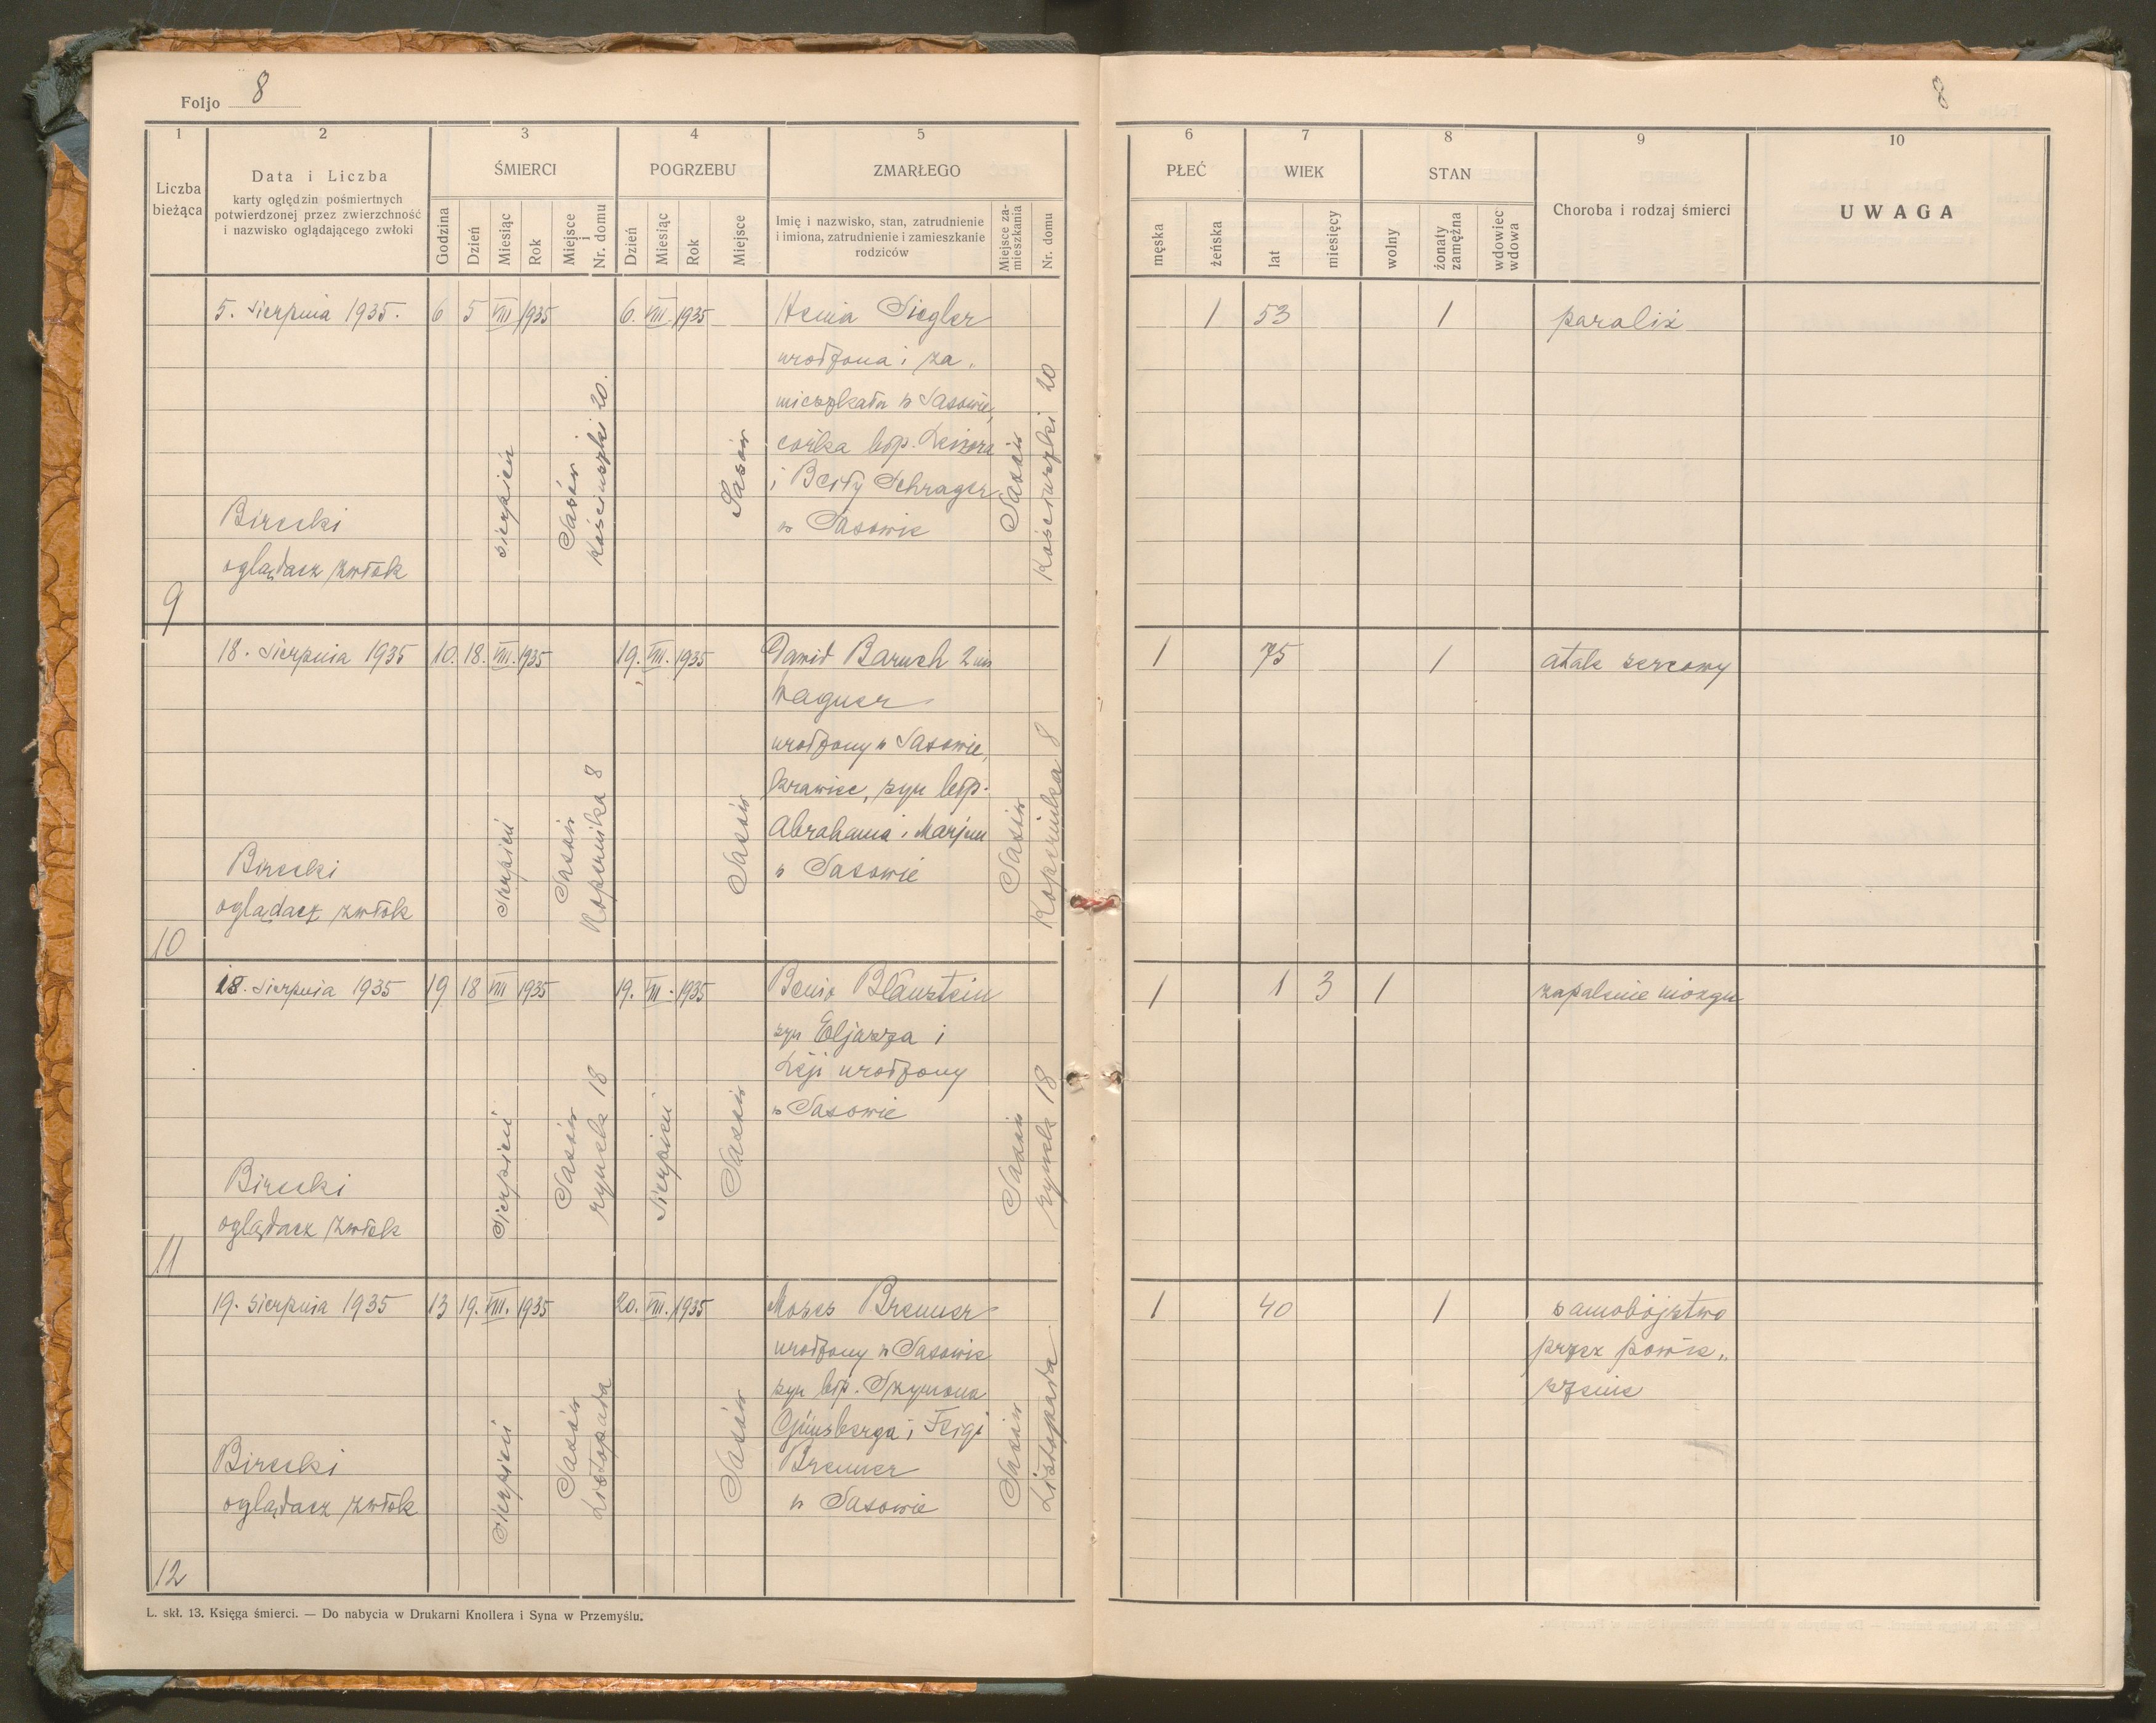 Foljo 8
8
1 2 3 4 5
6 7 8 9 10
Liczba bieżąca
Data i Liczba
karty oględzin pośmiertnych
potwierdzonej przez zwierzchność
i nazwisko oglądającego zwłoki
ŚMIERCI
Godzina
Dzień
Miesiąc
Rok
Miejsce i Nr. domu
POGRZEBU
Dzień
Miesiąc
Rok
Miejsce
ZMARŁEGO
Imię i nazwisko, stan, zatrudnienie
i imiona, zatrudnienie i zamieszkanie
rodziców
Miejsce za-
mieszkania
Nr. domu
PŁEĆ
męska
żeńska
WIEK
lat
miesięcy
STAN
wolny
żonaty
zamężna
wdowiec
wdowa
Choroba i rodzaj śmierci
UWAGA
9
5. sierpnia 1935.
Birecki
oglądacz zwłok
6 5 VIII 1935
sierpień
Sasów
Kościuszki 20.
6. VIII. 1935
Sasów
Henia Siegler
urodzona i za„
mieszkała w Sasowie,
córka błp. Leizora
i Beily Schrager
w Sasowie
Sasów
Kościuszki 20
1 53 1 paraliż
10
18. sierpnia 1935
Birecki
oglądacz zwłok
10. 18. VIII. 1935
Sierpień
Sasów
Kopernika 8
19. VIII. 1935
Sasów
Dawid Baruch 2 im
Wagner
urodzony w Sasowie,
krawiec, syn błp.
Abrahama i Marjem
w Sasowie
Sasów
Kopernika 8
1 75 1 atak sercowy
11
18. sierpnia 1935
Birecki
oglądacz zwłok
19 18 VIII 1935
Sierpień
Sasów
rynek 18
19. VIII. 1935
Sierpień
Sasów
Benio Blaustein
syn Eljasza i
Leji urodzony
w Sasowie
Sasów
rynek 18
1 1 3 1 zapalenie mózgu
12
19. sierpnia 1935
Birecki
oglądacz zwłok
13 19. VIII. 1935
Sierpień
Sasów
Listopada
20. VIII. 1935
Sasów
Moses Brenner
urodzony w Sasowie
syn błp. Szymona
Günsberga i Feigi
Brenner
w Sasowie
Sasów
Listopada
1 40 1 samobójstwo
przez powie„
szenie
L. skł. 13. Księga śmierci. — Do nabycia w Drukarni Knollera i Syna w Przemyślu.